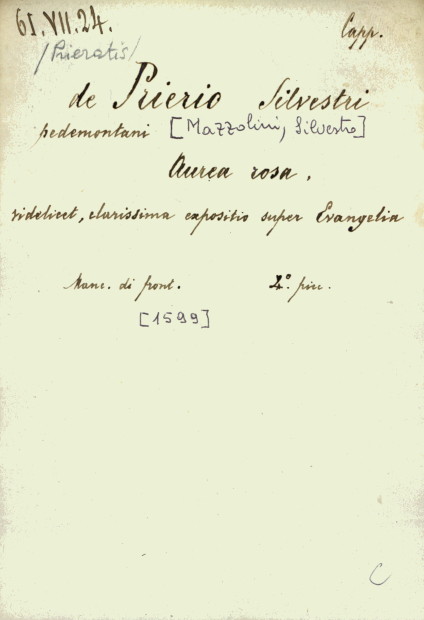 61.VII.24. Capp.
/Prieratis/
de Prierio Silvestri
pedemontani [Mazzolini, Silvestro]
Aurea rosa,
videlicet, clarissima expositio super Evangelia
Manc. di front. 4º. picc.
[1599]
C